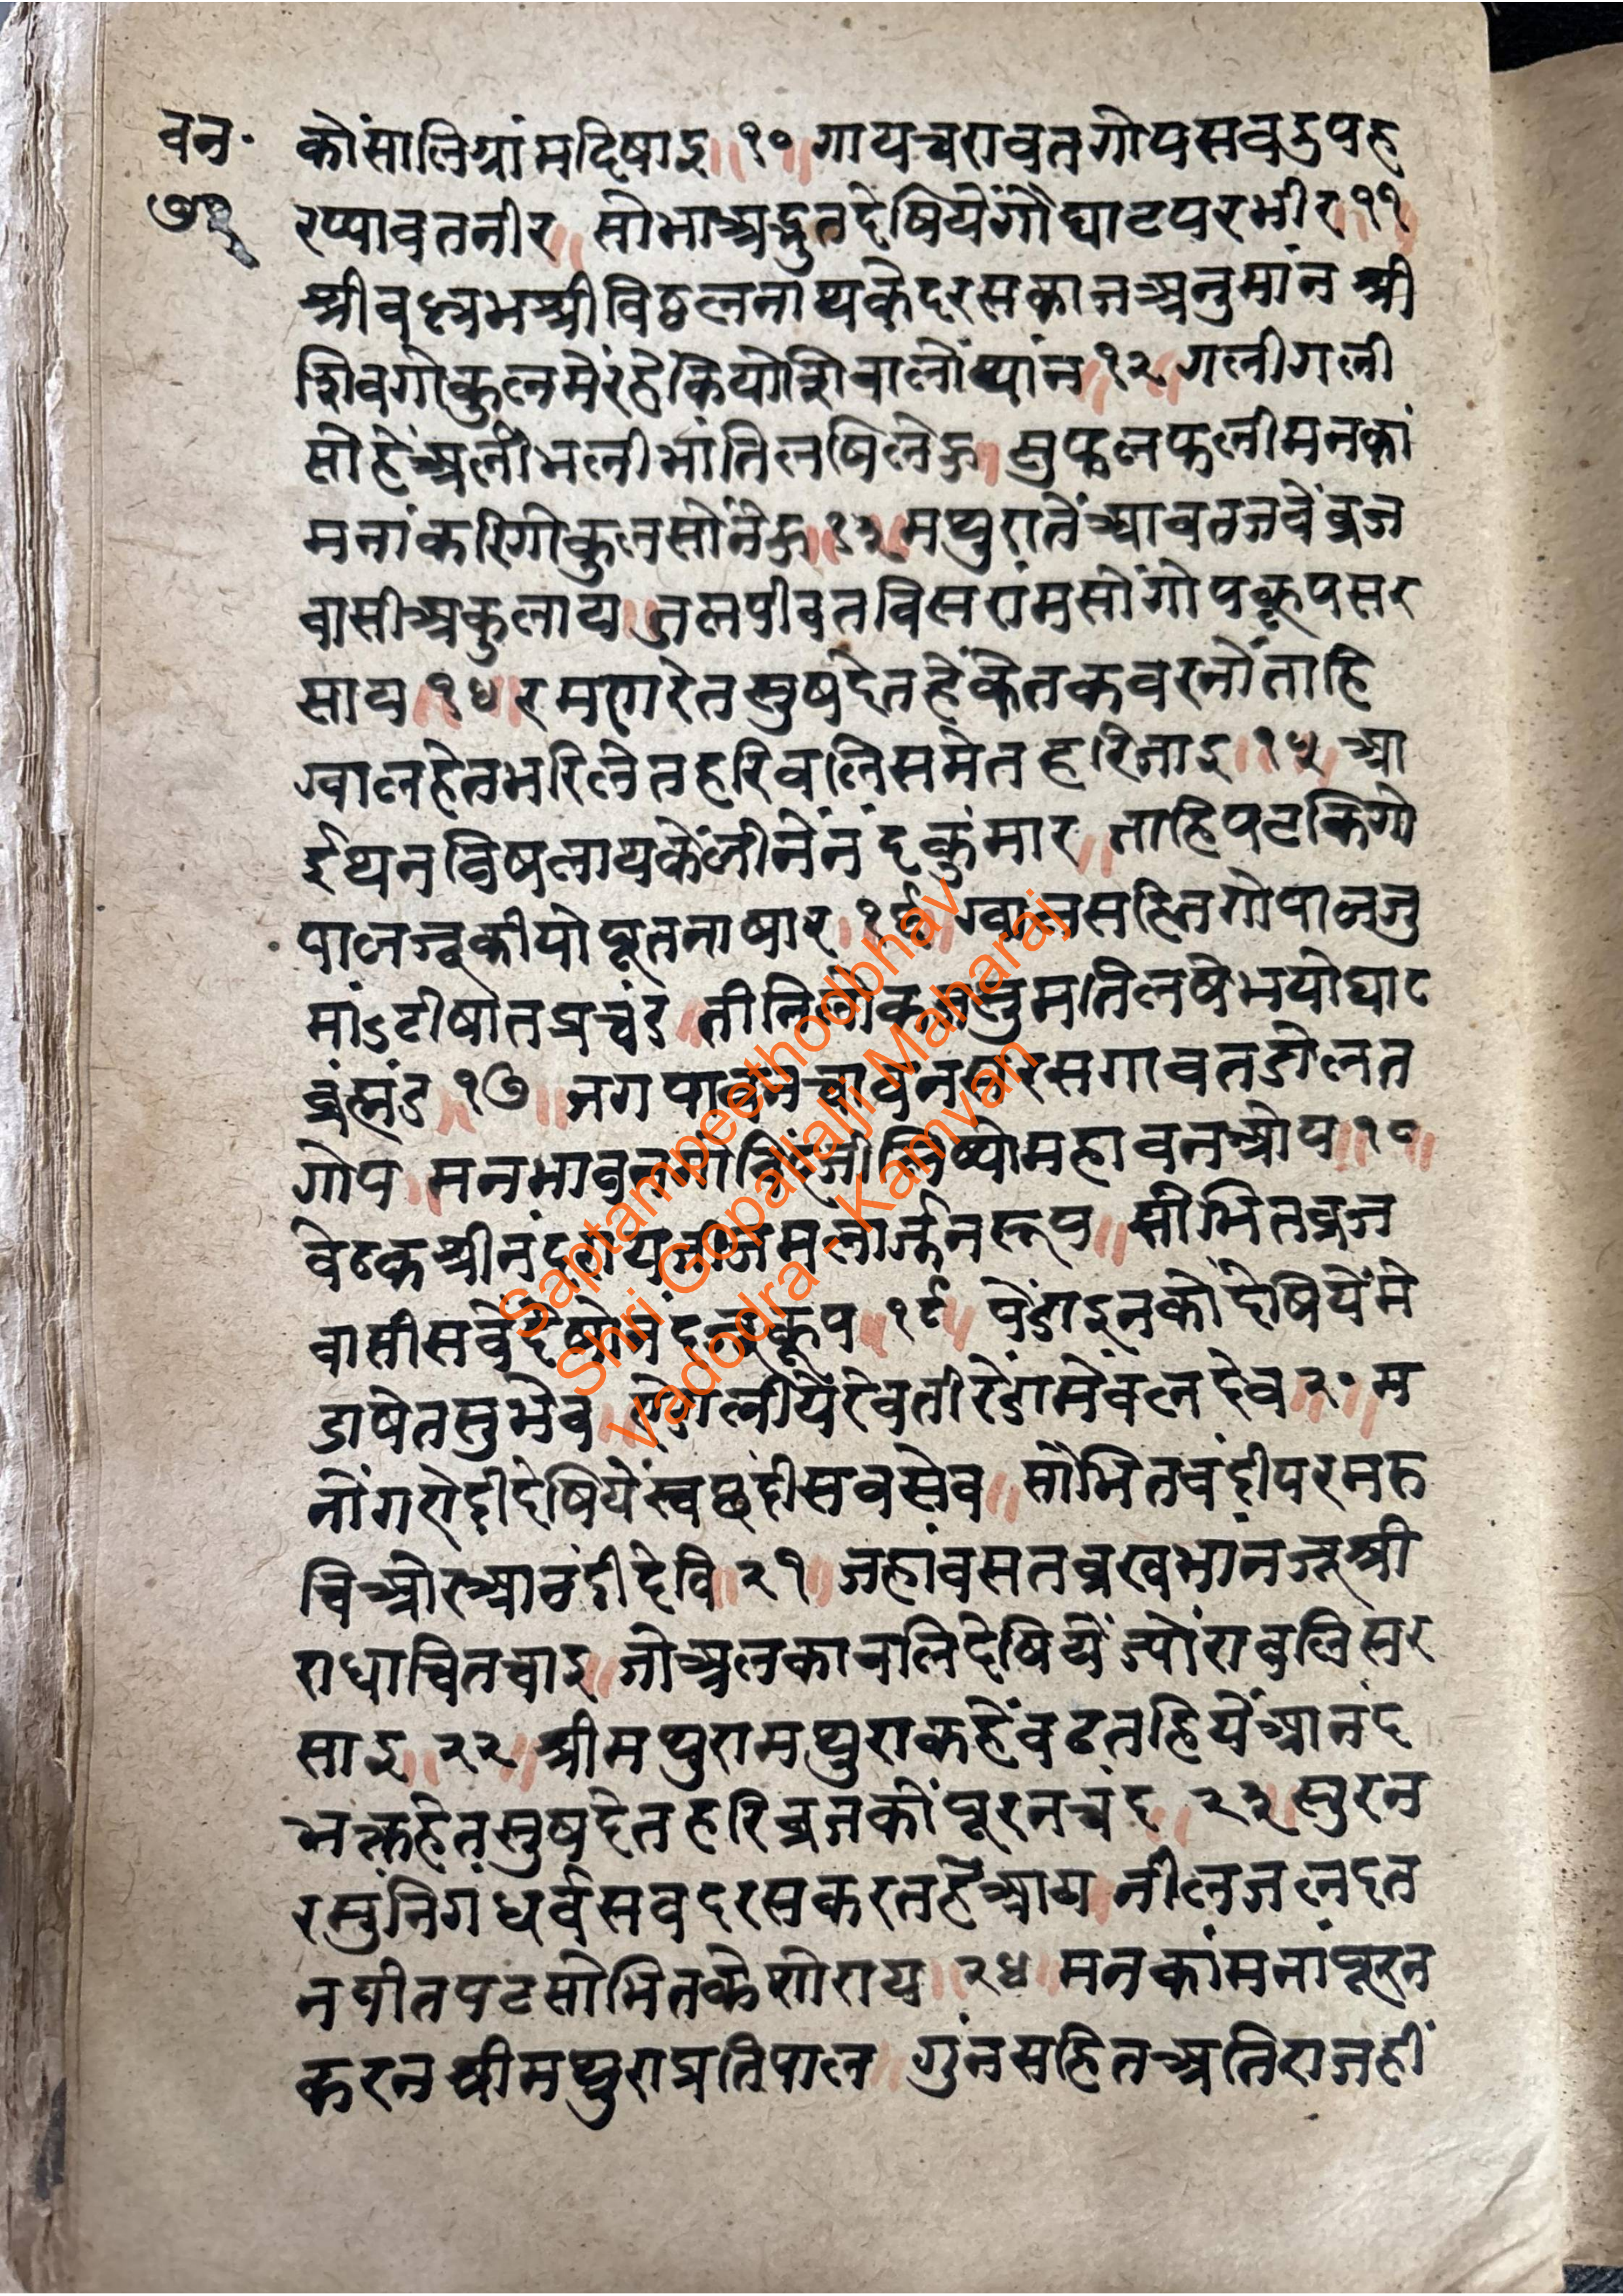 वन॰
७१
कोंसालिग्रांमदिषाइ॥१०॥गायचरावतगोपसवडुपह
रप्पावतनीर॥सोभाअद्भुतदेषियेंगौघाटपरभीर११॥
श्रीवल्लभश्रीविठ्ठलनाथकेदरसकाजअनुमांन श्री
शिवगोकुलमेंरंहेकियोशिवालोंथांन॥१२॥गलीगली
सोहेंअलीभलीभांतिलषिलेऊ॥सुफलफलीमनकां
मनांकरिगोकुलसोंनेऊ॥१३॥मथुरातेंआवतजवेंब्रज
वासीअकुलाय॥जलपीवतविसरांमसोंगोपकूपसर
साय॥१४॥रमणरेतसुषदेतहेंकेतकवरनोंताहि
ग्वालहेतभरिलेतहरिवलिसमेतहरिजाइ॥१५॥आ
ईथनविषलायकेंलीनेंनंदकुंमार॥ताहिपटकिगो
पालजूकीयोपूतनाषार॥१६॥ग्वालसहितगोपालजु
मांऽटीषातप्रचंड॥तीनिलोकजसुमतिलषेभयोघाट
ब्रंह्मंड॥१७॥जगपावनचावनसरसगावतडोलत
गोप॥मनभावन
महावनओप॥१८॥
वेठकश्रीनंदरायजीजमलार्जुनरूप॥सोभितब्रज
वासीसवेंदेषोनंदजूकूप॥१९॥पेंडाइनकोदेषियेंमे
डाषेतसुभेव॥
रेवतीरेंडामेंवलदेव॥२०॥म
नोंगरोद्दीदेषियेंस्वछंदीसवसेव॥सोभितवंद्दीपरमरु
चिओरआनंदीदेवि॥२१॥जहांवसतब्रखभांनजूश्री
राधाचितचाइ॥जोअलकावलिदेषियेंज्योंरावलिसर
साइ॥२२॥श्रीमथुरामथुराकहेंवढतहियेंआनंद
भक्तहेतसुषदेतहरिब्रजकोंपूरनचंद॥२३॥सुरन
रसुंनिगंधर्वसवदरसकरतहेंआय॥नीलजलदत
नपीतपटसोभितकेशोराय॥२४॥मनकांमनांपूरन
करनश्रीमथुराप्रतिपाल॥गुंनसहितअतिराजहीं
Saptampeethodbhav
Shri Gopallalji Maharaj
Vadodra - Kamvan